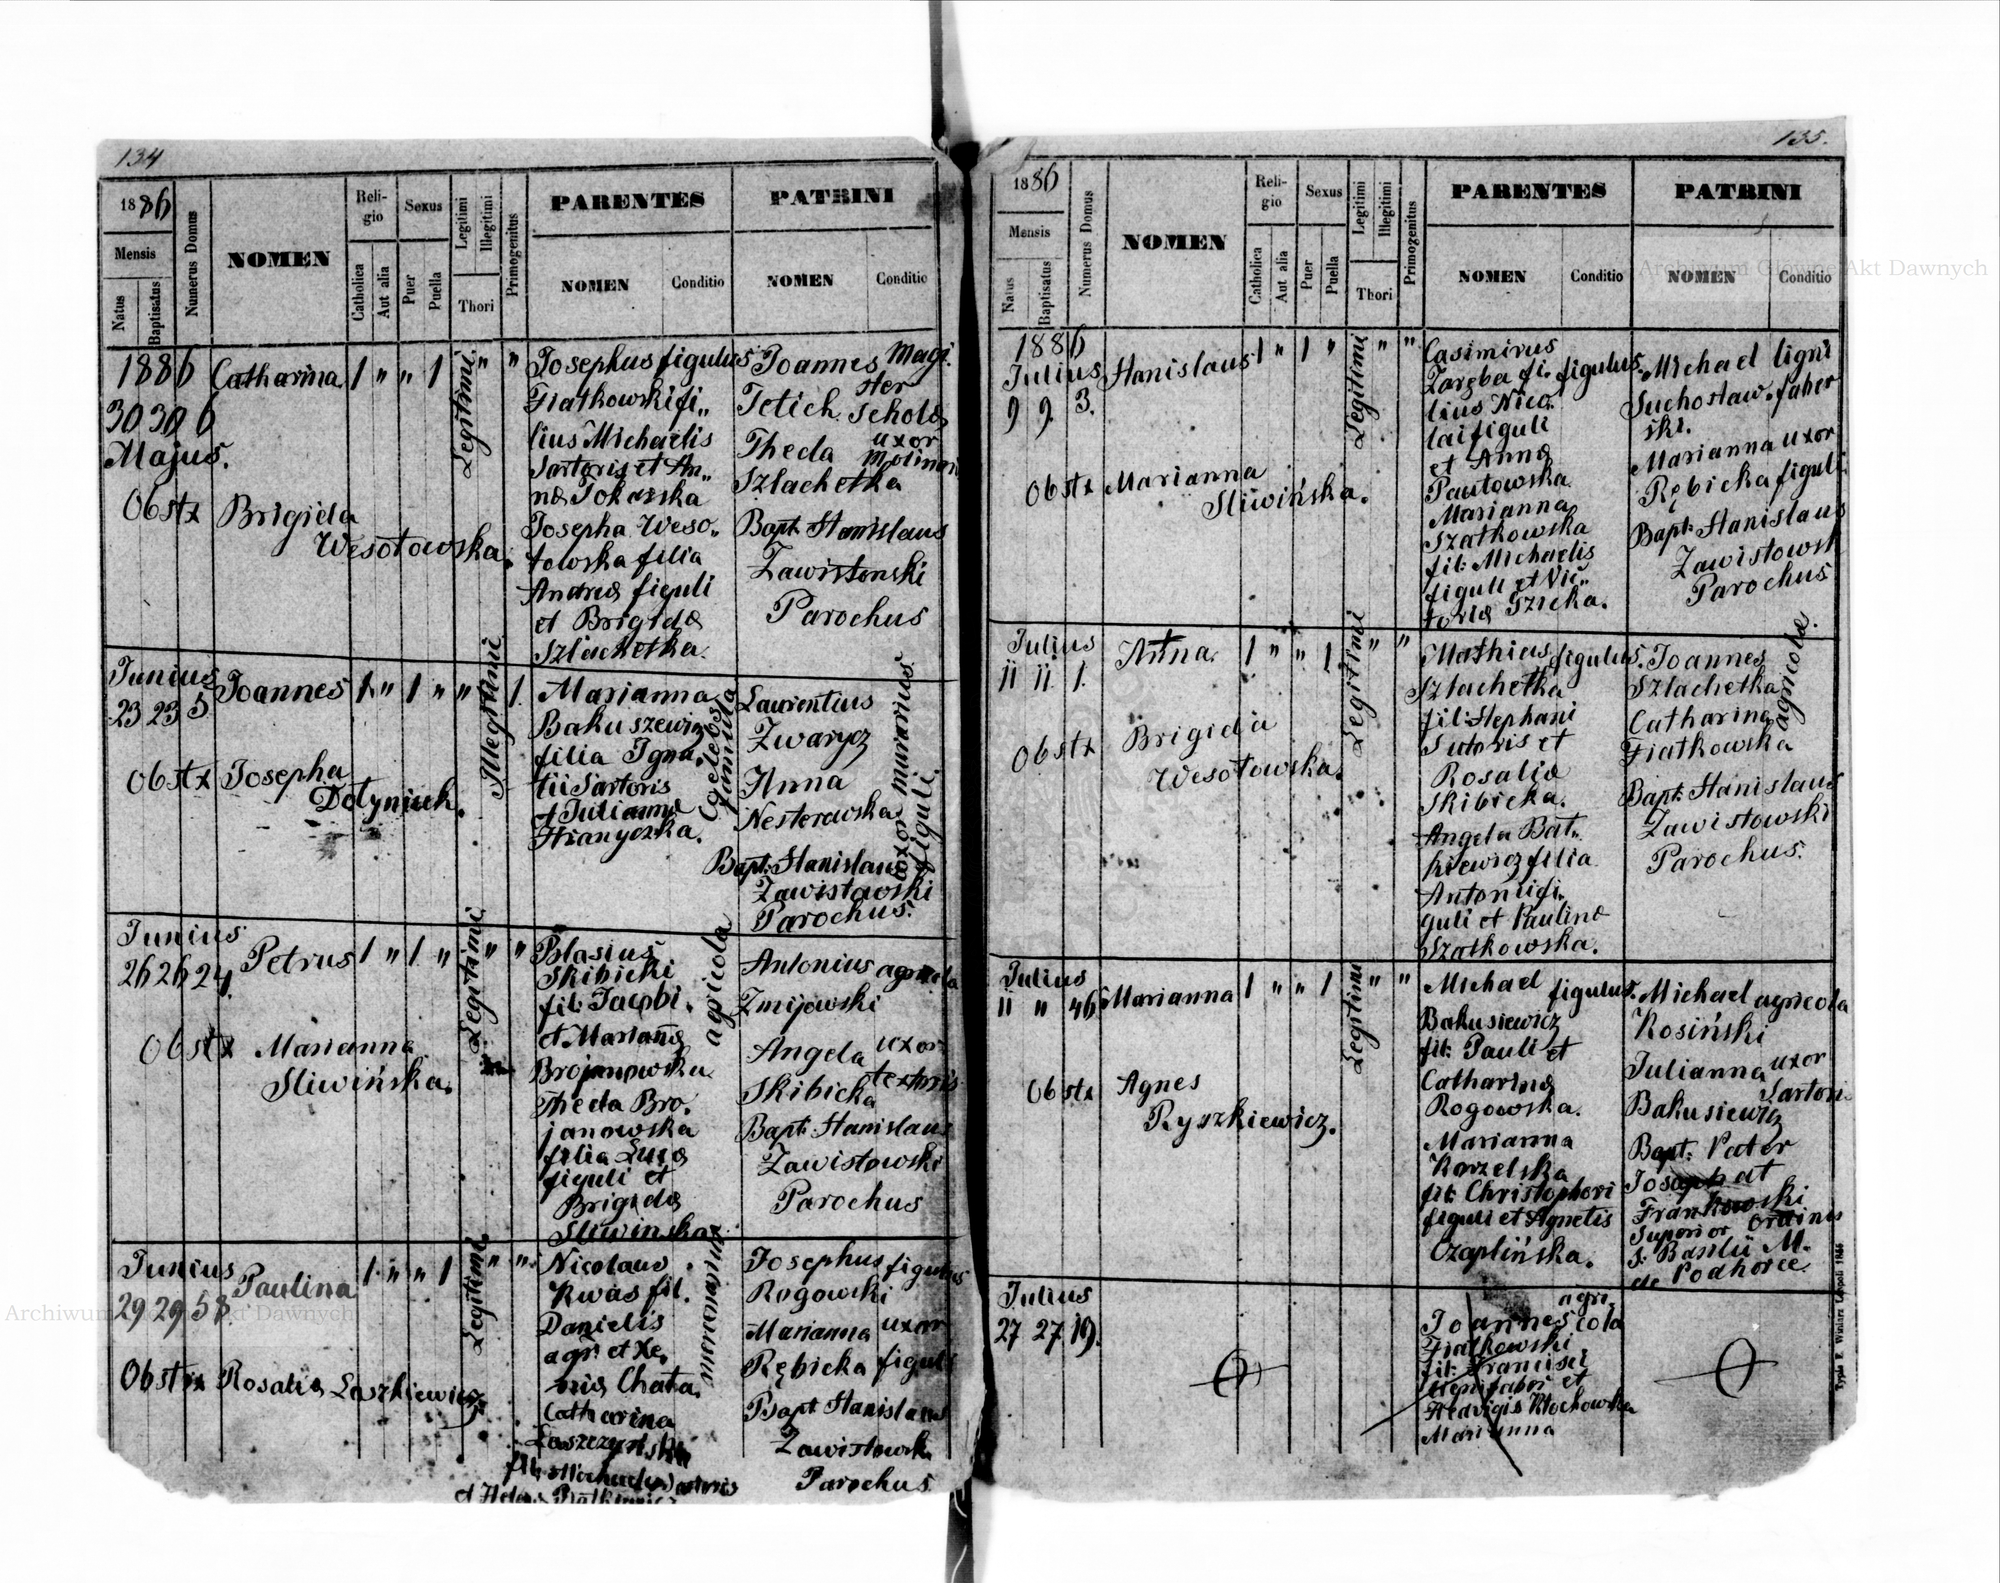 134
1886
Mensis
Natus
Baptisatus
Numerus Domus
NOMEN
Reli-
gio
Catholica
Aut alia
Sexus
Puer
Puella
Legitimi
Illegitimi
Thori
Primogenitus
PARENTES
NOMEN
Conditio
PATRINI
NOMEN
Conditio
1886
30 30 6
Majus.
Catharina
1 " " 1
Legitimi
" "
Obstx Brigida
Wesołowska.
Josephus figulus
Fiałkowski fi„
lius Michaelis
Sartoris et An„
næ Tokarska
Josepha Weso„
łowska filia
Andreæ figuli
et Brigidæ
Szlachetka.
Joannes Magi
ster
Tetich scholæ
Theda uxor
molinari
Szlachetka
Bapt: Stanislaus
Zawistowski
Parochus
Junius
23 23 5
Joannes
1 " 1 " "
Illegitimi
1.
Obstx Josepha
Dołyniuk.
Marianna
Bakuszewicz
filia Igna.
tii Sartoris
et Juliannæ
Hranyczka.
Coelebs
famula
Laurentius
Zwarycz
murarius
Anna
Nesterowska
uxor figuli
Bapt: Stanislaus
Zawistowski
Parochus.
Junius
26 26 24.
Petrus
1 " 1 "
Legitimi
" "
Obstx Marianna
Sliwińska.
Blasius
Skibicki
fil: Jacobi.
et Mariañæ
Brojanowska
Theda Bro.
janowska
filia Lucæ
figuli et
Brigidæ
Sliwinska
agricola
Antonius agricola
Zmijowski
Angela uxor
Skibicka textoris
Bapt: Stanislaus
Zawistowski
Parochus
Junius
29 29 58
Paulina
1 " " 1
Legitimi
" "
Obstix Rosalia Laszkiewicz
Nicolaus
Kwas fil.
Danielis
agr: et Xe.
niæ Chata.
Catharina
Laszczyńska
Josephus figulus
Rogowski
Marianna uxor
Rębicka figuli
Bapt Stanislaus
Zawistowski
Parochus
135.
1886
Mensis
Natus
Baptisatus
Numerus Domus
NOMEN
Reli-
gio
Catholica
Aut alia
Sexus
Puer
Puella
Legitimi
Illegitimi
Thori
Primogenitus
PARENTES
NOMEN
Conditio
PATRINI
NOMEN
Conditio
1886
Julius
9 9. 3.
Stanislaus
1 " 1 "
Legitimi
" "
Obstx Marianna
Sliwińska.
Casimirus
Zaręba fi. figulus.
lius Nico.
lai figuli
et Annæ
Pautowska
Marianna
Szatkowska
fil: Michaelis
figuli et Vic„
toriæ Szicka.
Michael ligni
Suchosław. faber
ski.
Marianna uxor
Rębicka figuli
Bapt: Stanislaus
Zawistowski
Parochus
Julius
11 11. 1.
Anna.
1 " " 1
Legitimi
" "
Obstx Brigida
Wesołowska.
Mathias figulus.
Szlachetka
fil: Stephani
Sutoris et
Rosaliæ
Skibicka.
Angela Bat„
kiewicz filia
Antonii fi.
guli et Paulinæ
Szatkowska.
Joannes
Szlachetka
agricolæ.
Catharina
Fiatkowska
Bapt: Stanislaus
Zawistowski
Parochus.
Julius
11 " 46
Marianna
1 " " 1
Legitimi
" "
Obstx Agnes
Ryszkiewicz.
Michael figulus.
Bakusiewicz
fil: Pauli et
Catharinæ
Rogowska.
Marianna
Korzelska
fil: Christophori
figuli et Agnetis
Czaplińska.
Michael agricola
Kosiński
Julianna uxor
Sartoris
Bakusiewicz
Bapt: Pater
Josaphat
Frankowski
Superior Ordinis
S. Basilii M.
de Podhorce
Julius
27 27 19.
Joannes agri.
cola
Fiatkowski
fil: Francisci
et
Hedvigis Kłochowska
Marianna
Typis E. Winiarz Leopoli 1866
Archiwum Główne Akt Dawnych
Archiwum Główne Akt Dawnych